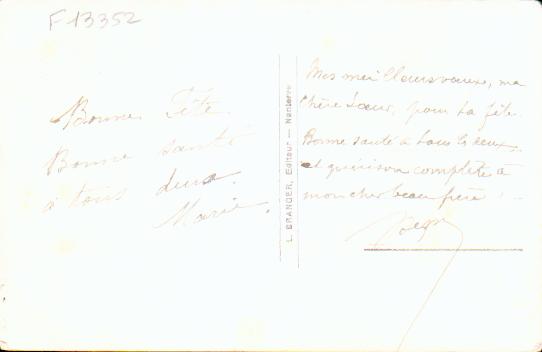 F13352
Bonne Fête
Bonne santé
à tous deux.
Marie.
L. BRANGER, Editeur — Nanterre
Mes meilleurs vœux, ma
chère sœur, pour ta fête.
Bonne santé à tous les deux,
et guérison complète à
mon cher beau frère